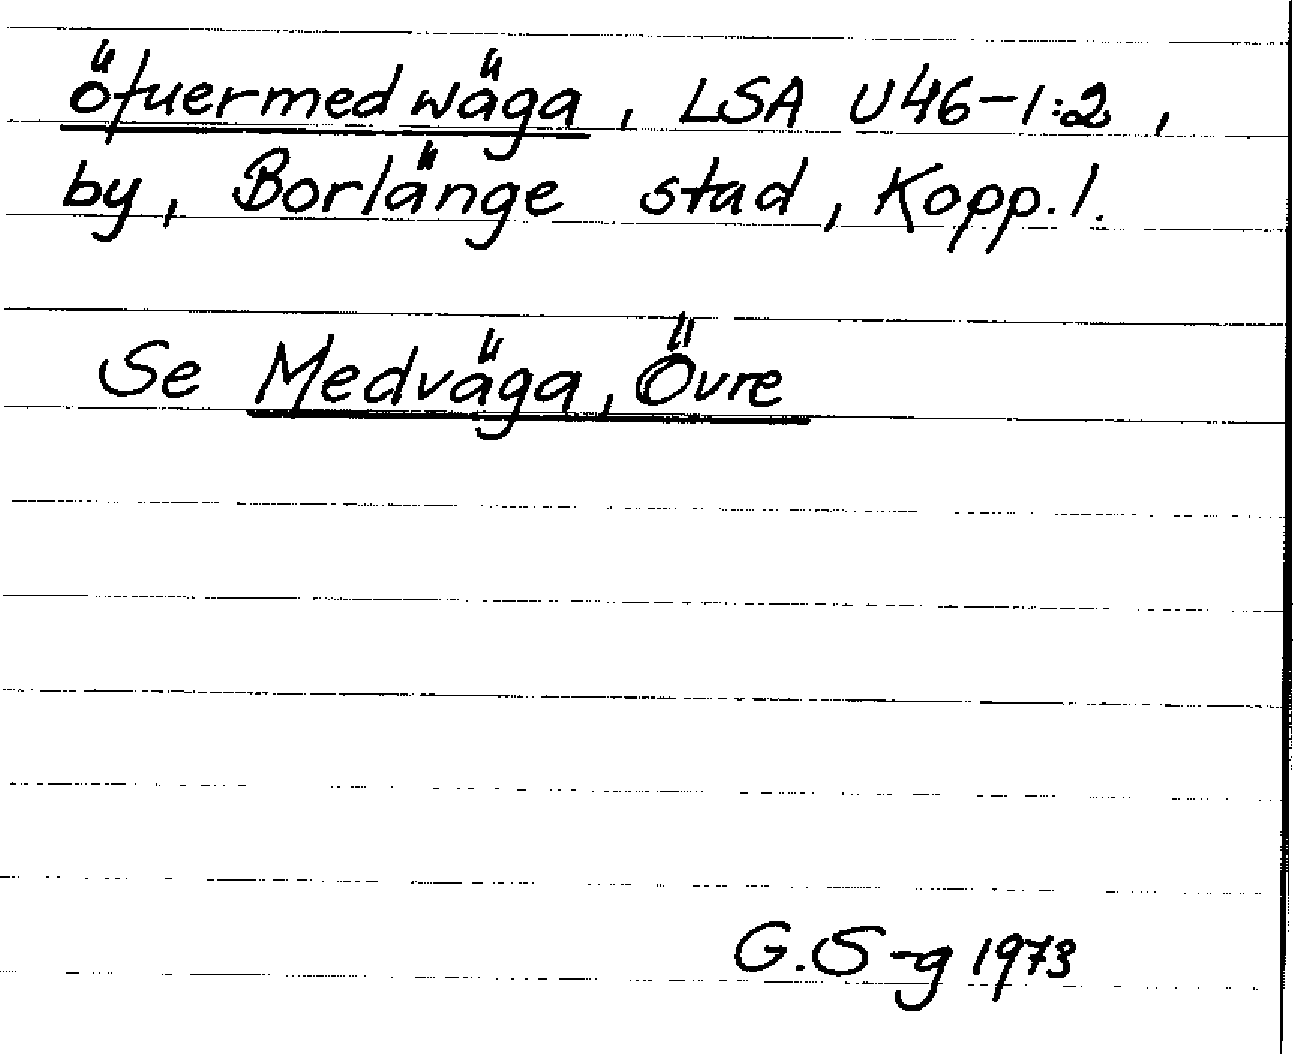 öfuermedwäga, LSA U46-1:2,
by, Borlänge stad, Kopp. l.
Se Medväga, Övre
G.S-g 1973